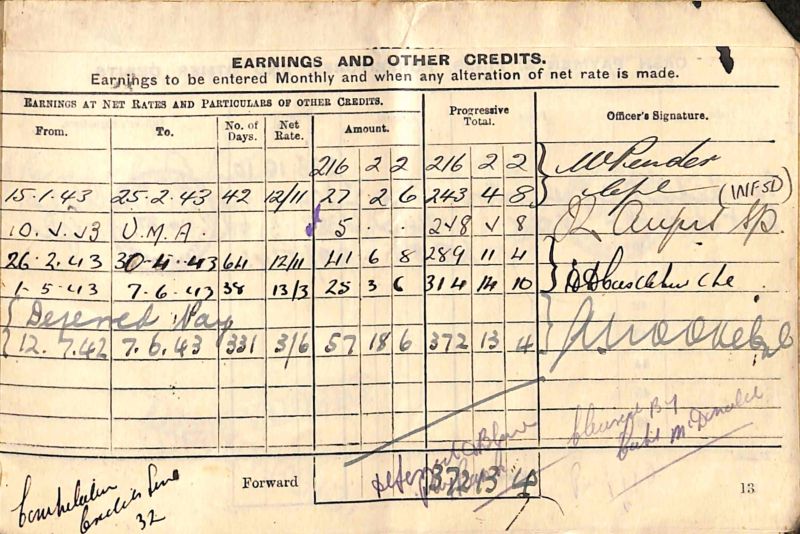 EARNINGS AND OTHER CREDITS.
Earnings to be entered Monthly and when any alteration of net rate is made.
EARNINGS AT NET RATES AND PARTICULARS OF OTHER CREDITS.
From. To. No. of Days. Net Rate. Amount. Progressive Total. Officer's Signature.
216 2 2 216 2 2
15.1.43 25.2.43 42 12/11 27 2 6 243 4 8 (INFSD)
U.M.A. 5 . . 248 8
26.2.43 30.4.43 64 12/11 41 6 8 289 11 4
1.5.43 7.6.43 38 13/3 25 3 6 314 14 10
Deferred Pay
12.7.42 7.6.43 331 3/6 57 18 6 372 13 4
Cleared By
Capt McDonald
Forward 372 13 4
32
13